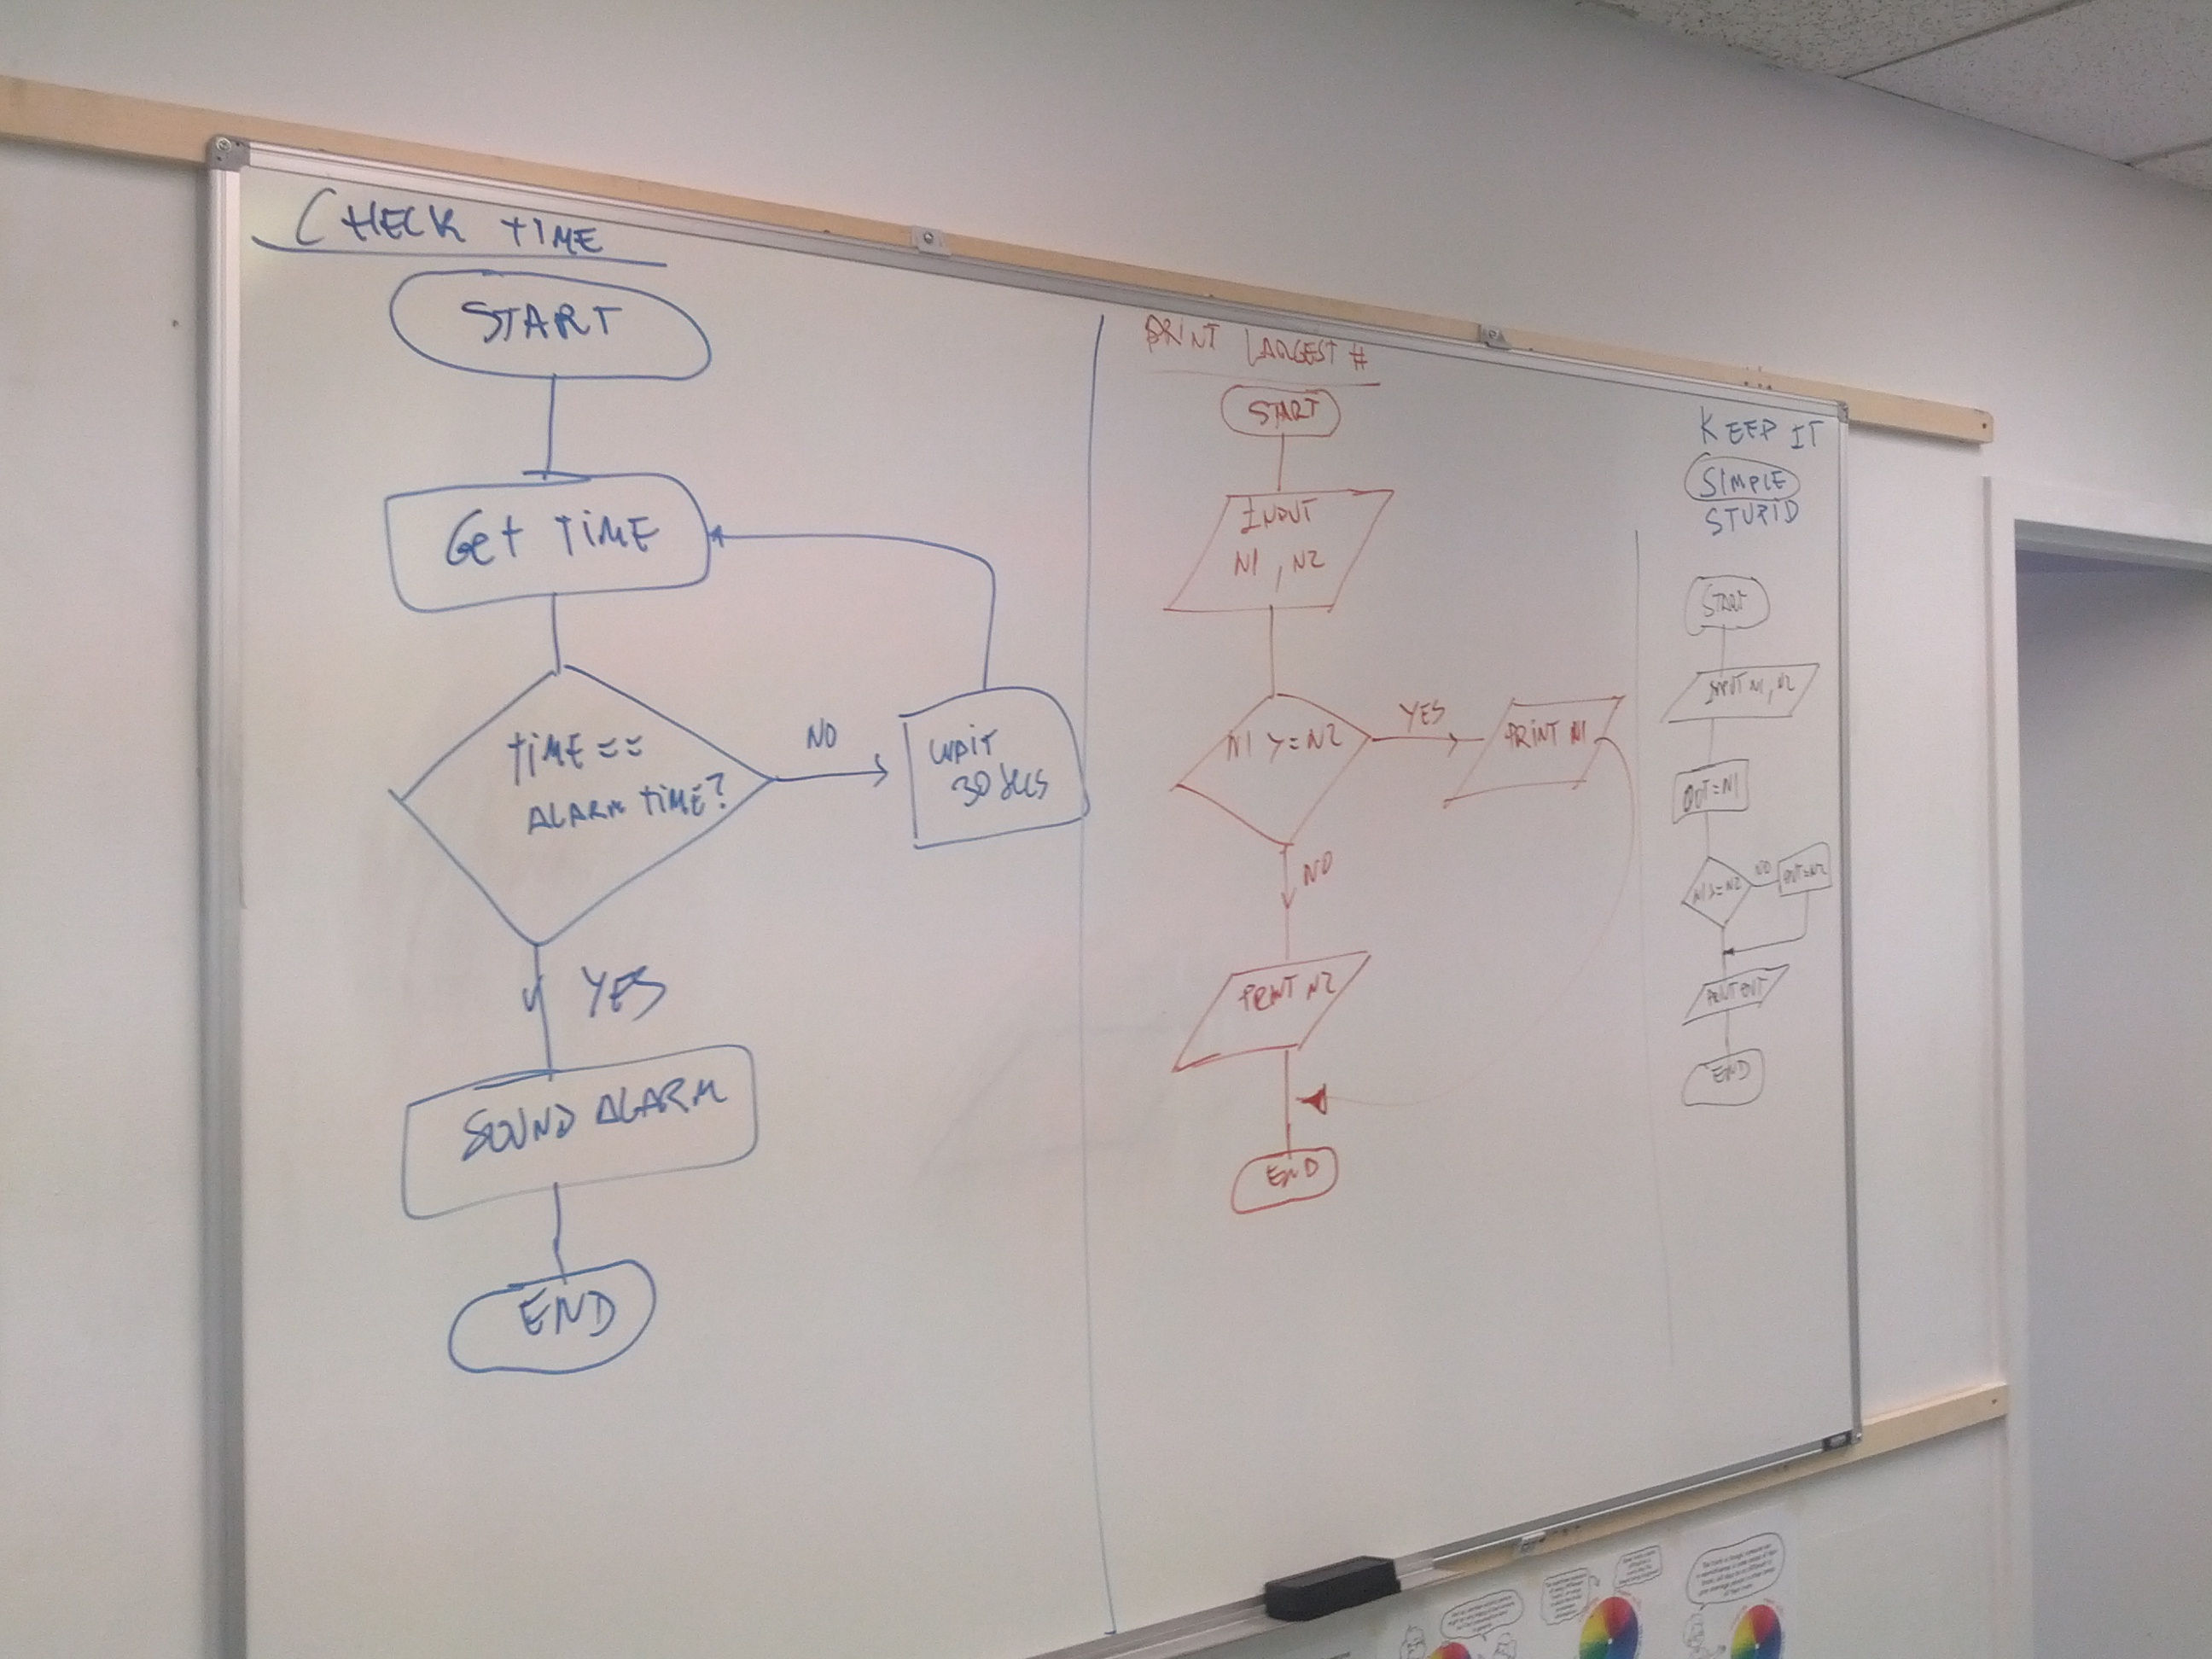 CHECK TIME
START
Get TIME
TIME ==
ALARM TIME?
NO
WAIT
30 secs
YES
SOUND ALARM
END
PRINT LARGEST #
START
INPUT
N1, N2
N1 >= N2
YES
PRINT N1
NO
PRINT N2
END
KEEP IT
SIMPLE
STUPID
START
INPUT N1, N2
OUT = N1
N1 >= N2
NO
OUT = N2
PRINT OUT
END